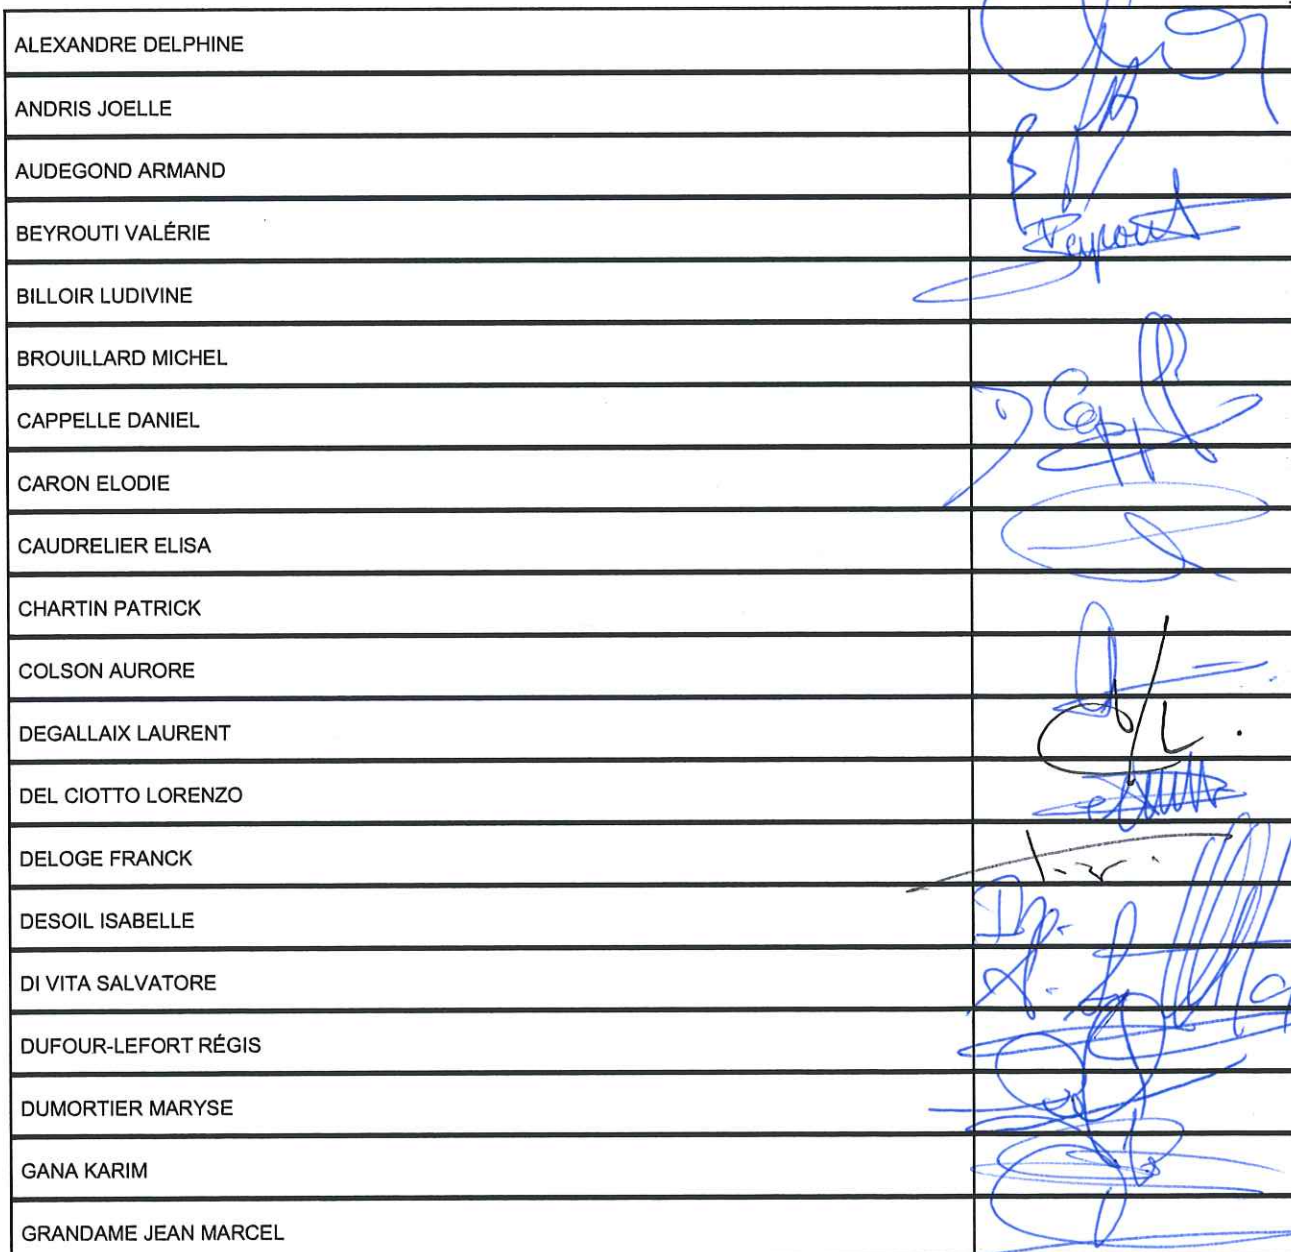 ALEXANDRE DELPHINE
ANDRIS JOELLE
AUDEGOND ARMAND
BEYROUTI VALÉRIE
BILLOIR LUDIVINE
BROUILLARD MICHEL
CAPPELLE DANIEL
CARON ELODIE
CAUDRELIER ELISA
CHARTIN PATRICK
COLSON AURORE
DEGALLAIX LAURENT
DEL CIOTTO LORENZO
DELOGE FRANCK
DESOIL ISABELLE
DI VITA SALVATORE
DUFOUR-LEFORT RÉGIS
DUMORTIER MARYSE
GANA KARIM
GRANDAME JEAN MARCEL